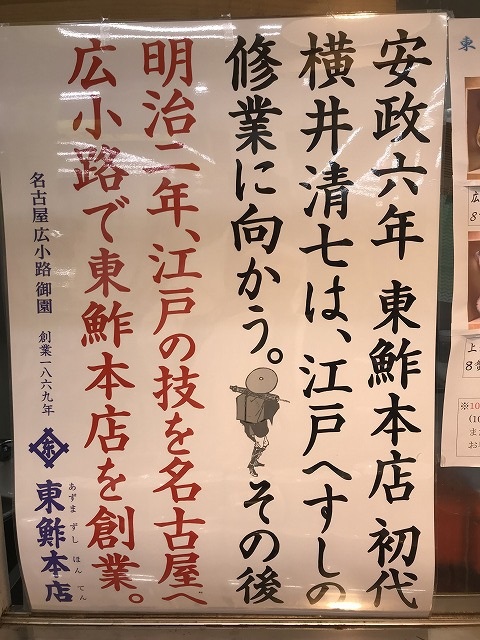 安政六年 東鮓本店 初代
横井清七は、江戸へすしの
修業に向かう。その後
明治二年、江戸の技を名古屋へ
広小路で東鮓本店を創業。
名古屋 広小路 御園 創業一八六九年
東
あずま ずし ほん てん
東鮓本店
東
広
8
上
8
※10
(10
ま
お